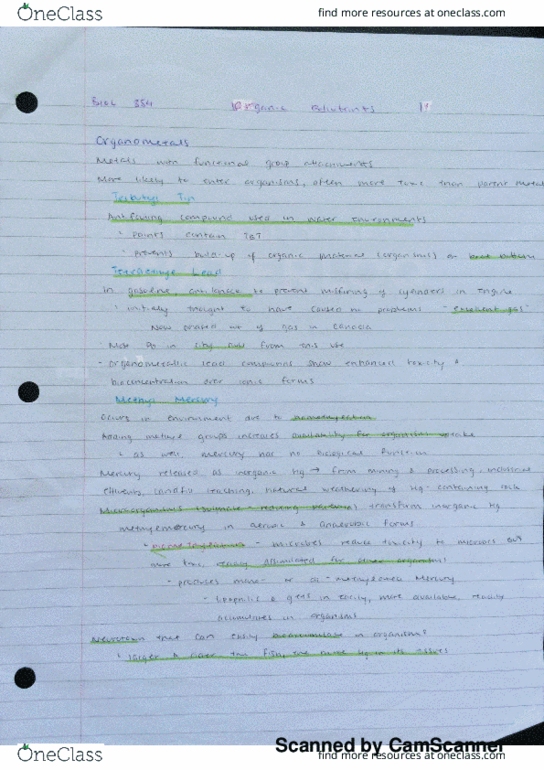 OneClass
find more resources at oneclass.com
BIOL 354 Organic Pollutants 19
Organometals
Metals with functional group attachments
More likely to enter organisms, often more toxic than parent metal
Tributyl Tin
Antifouling compound used in water environments
paints contain TBT
prevents build-up of organic material (organisms) on boat
Tetraethyl Lead
in gasoline, to prevent misfiring of cylinders in engine
initially thought to have caused no problems
Now phased out of gas in Canada
Most Pb in city from this use
- Organometallic lead compounds show enhanced toxicity &
bioconcentration over ionic forms
Methyl Mercury
Occurs in environment due to
Adding methyl groups increases availability for uptake
as well, mercury has no biological function
Mercury released as inorganic Hg → from mining & processing, industrial
effluents, landfill leaching, natural weathering of Hg-containing rock
Microorganisms transform inorganic Hg
in aerobic & anaerobic forms
- microbes reduce toxicity to microbes but
more toxic, readily assimilated for other organisms
- produces mono- or di-methylated Mercury
- lipophilic & gets in easily, more available, readily
accumulates in organisms
Neurotoxin that can easily bioaccumulate in organisms
larger & older the fish, the more Hg in its tissues
Scanned by CamScanner
OneClass
find more resources at oneclass.com